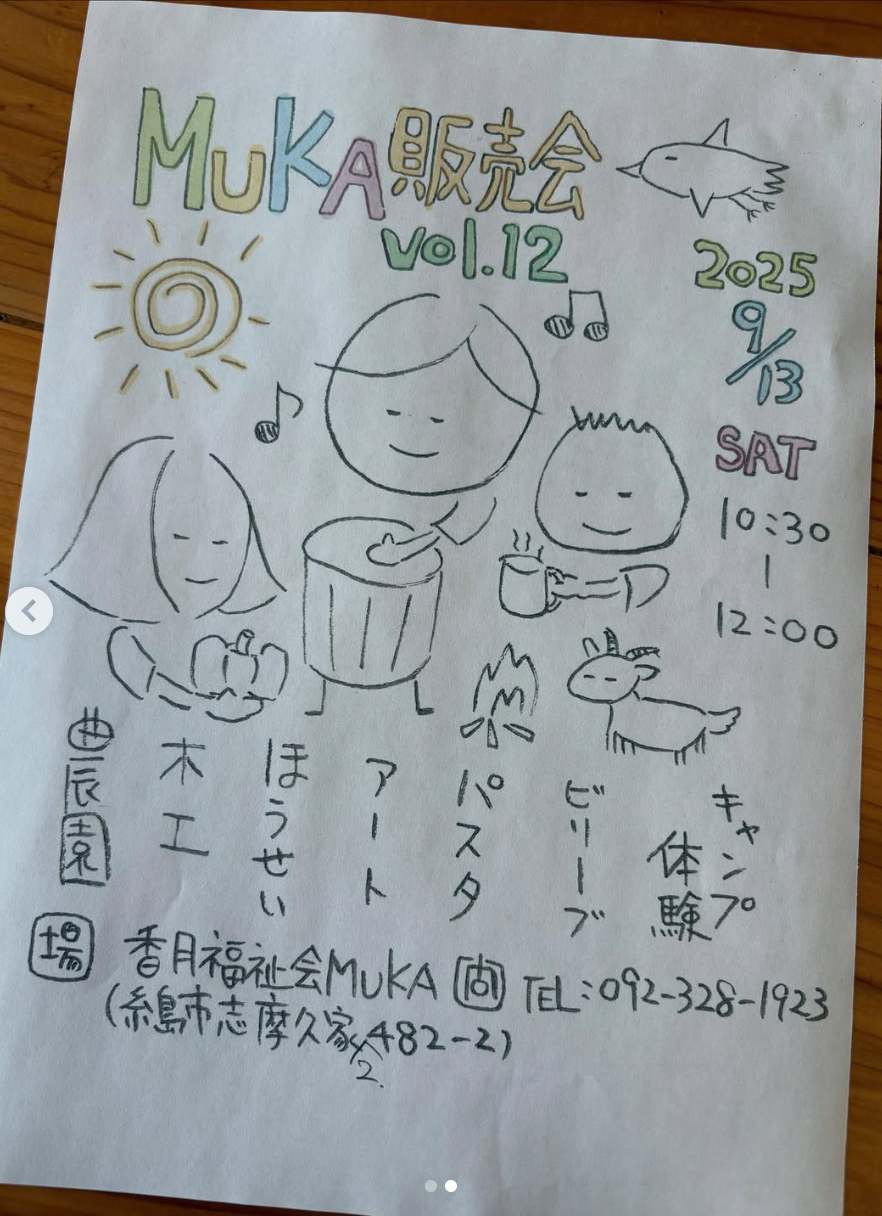 MUKA販売会
vol.12
2025
9/13
SAT
10:30
|
12:00
キャンプ
体験
ビリーブ
パスタ
アート
ほうせい
木工
農園
場 香月福祉会MUKA 問 TEL:092-328-1923
(糸島市志摩久家2482-2)